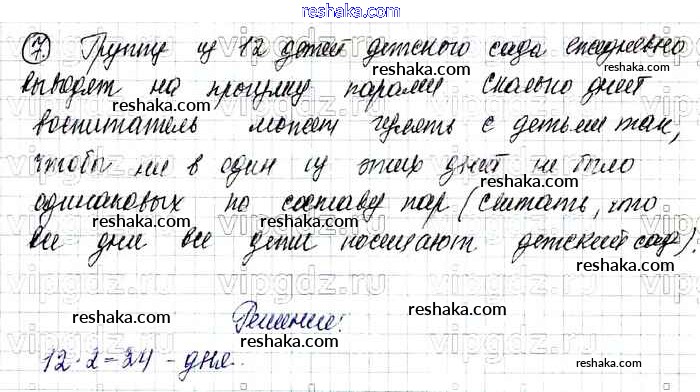 reshaka.com
7. Группу из 12 детей детского сада ежедневно
выводят на прогулку парами Сколько дней
reshaka.com reshaka.com reshaka.com
воспитатель может гулять с детьми так,
reshaka.com reshaka.com
чтобы ни в один из этих дней не было
reshaka.com reshaka.com
одинаковых по составу пар (считать, что
reshaka.com reshaka.com reshaka.com
все дни все дети посещают детский сад).
vipgdz.ru vipgdz.ru vipgdz.ru
reshaka.com reshaka.com
Решение:
12 · 2 = 24 - дня.
reshaka.com reshaka.com
reshaka.com